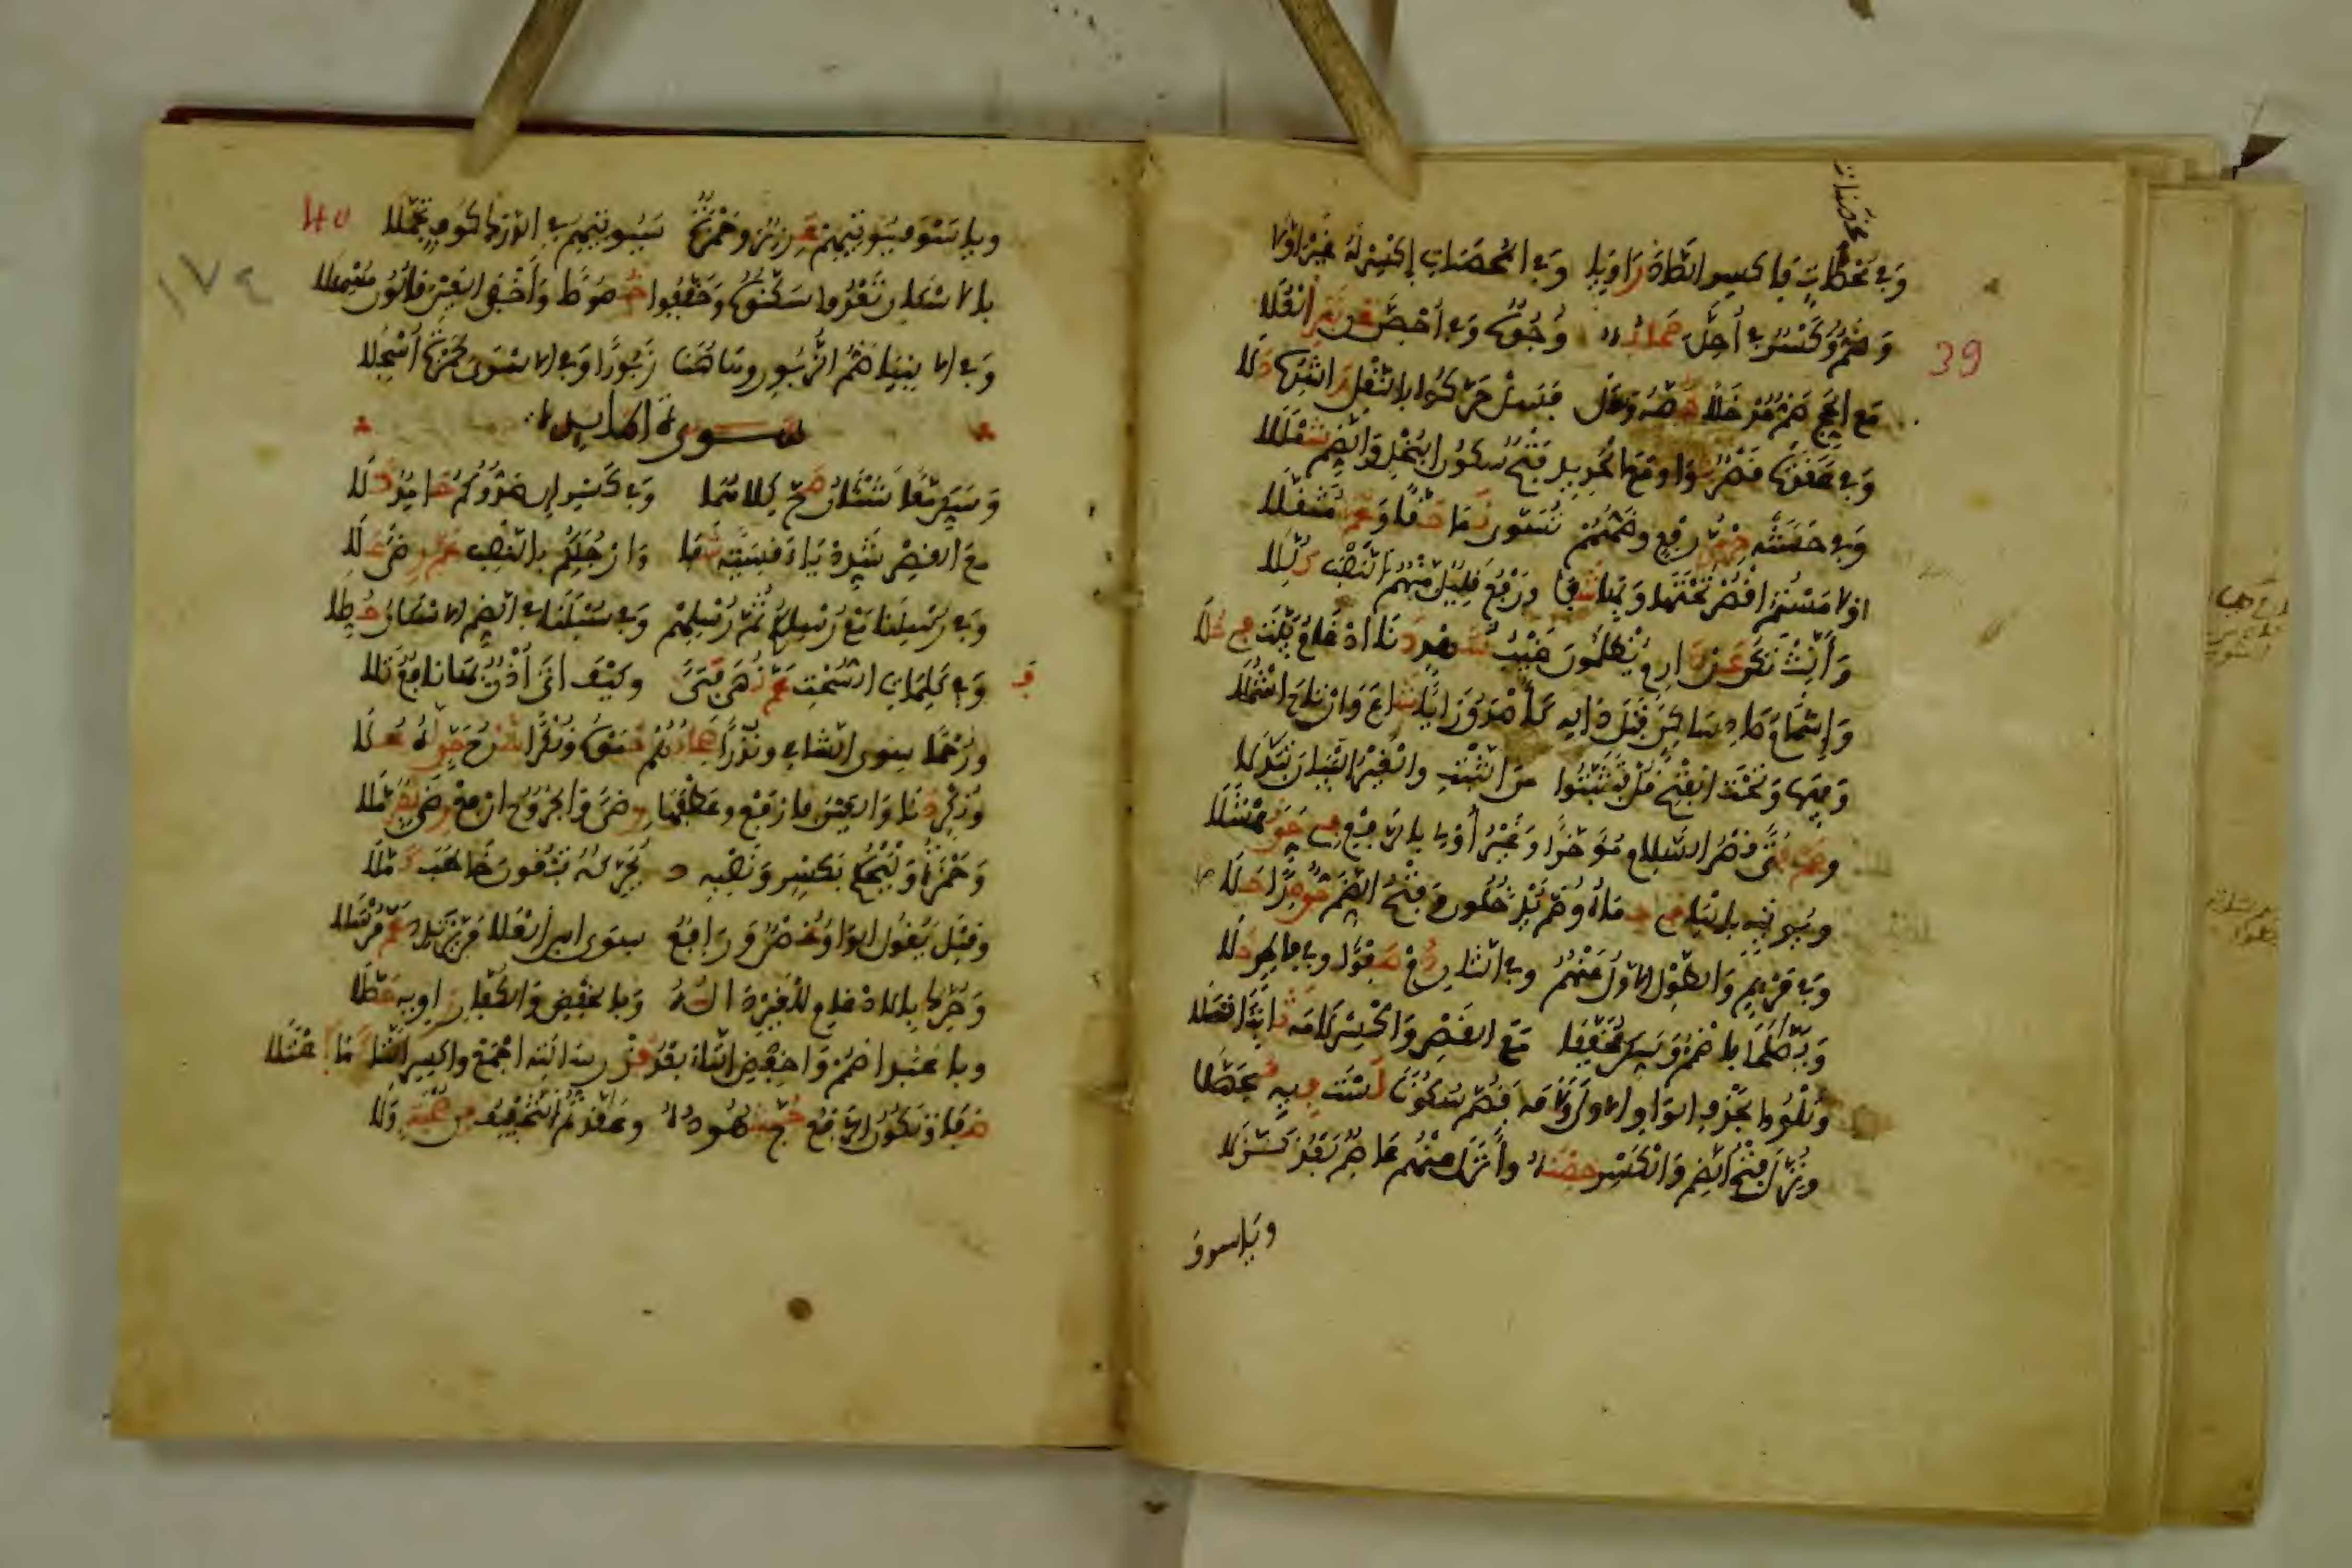 محصنات
وفي محصنات فاكسر الصاد راويا وفي المحصنات اكسر له غير اولا
39
وضم وكسر في احل صحابه وجوه وفي احصن عن نفر العلا
مع الحج ضموا مدخلا خصه وسل فسل حركوا بالنقل راشده دلا
وفي عاقدت قصر ثوا ومع الحديد فتح سكون البخل والضم شمللا
وفي حسنه حرمي رفع وضمهم تسوى نما حقا وعم مثقلا
ولامستم اقصر تحتها وبها شفا ورفع قليل منهم النصب كللا
وانث تكن عن دارم يظلمون غيب شهد دنا ادغام بيت في حلا
واشمام صاد ساكن قبل داله كاصدق زايا شاع وارتاح اشملا
وفيها وتحت الفتح قل فتثبتوا من الثبت والغير البيان تبدلا
وعم فتى قصر السلام مؤخرا وغير اولي بالرفع في حق نهشلا
ويؤتيه باليا في حماه وضم يدخلون وفتح الضم حق صرا حلا
وفي مريم والطول الاول عنهم وفي الثان دم صفوا وفي فاطر حلا
ويصالحا فاضمم وسكن مخففا مع القصر واكسر لامه ثابتا تلا
وتلووا بحذف الواو الاولى ولامه فضم سكونا لست فيه مجهلا
ونزل فتح الضم والكسر حصنه وانزل عنهم عاصم بعد نزلا
ويا سوف
40
١٧٩
ويا سوف يؤتيهم عزيز وحمزة سيؤتيهم في الدرك كوف تحملا
بالاسكان تعدوا سكنوه وخففوا خصوصا واخفى العين قالون مسهلا
وفي الانبيا ضم الزبور وهاهنا زبورا وفي الاسرى لحمزة اسجلا
سورة المايدة
وسكن معا شنئان صح كلاهما وفي كسر ان صدوكم حامد دلا
مع القصر شدد ياء قاسية شفا وارجلكم بالنصب عم رضى علا
وفي رسلنا مع رسلكم ثم رسلهم وفي سبلنا في الضم الاسكان حصلا
وفي كلمات السحت عم نهى فتى وكيف اتى اذن به نافع تلا
ورحما سوى الشامي ونذرا صحابهم حموه ونكرا شرع حق له علا
ونكر دنا والعين فارفع وعطفها رضى والجروح ارفع رضى نفر ملا
وحمزة وليحكم بكسر ونصبه يحركه تبغون خاطب كملا
وقبل يقول الواو غصن ورافع سوى ابن العلا من يرتدد عم مرسلا
وحرك بالادغام للغير داله وبالخفض والكفار راويه حصلا
وبا عبد اضمم واخفض التاء بعد فز رسالته اجمع واكسر التا كما اعتلا
صفا وتكون الرفع حج شهوده وعقدتم التخفيف من صحبة ولا